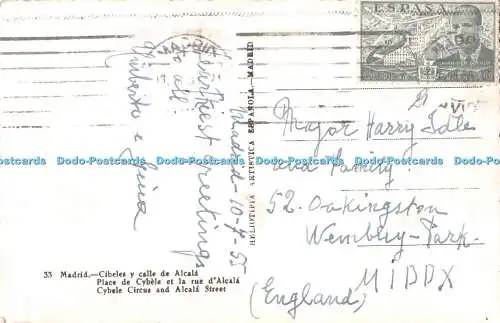 Madrid - 10-7-55
Kindest greetings
to all!
Umberto e Gina
33 Madrid.—Cibeles y calle de Alcalá
Place de Cybèle et la rue d'Alcalá
Cybele Circus and Alcalá Street
HELIOTIPIA ARTISTICA ESPAÑOLA.—MADRID
ESPAÑA
Major Harry Idle
and Family.
52. Oakington
Wembley-Park.
MIDDX
(England)
Dodo-Postcards Dodo-Postcards Dodo-Postcards Dodo-Postcards Dodo-Postcards Dodo-Postcards